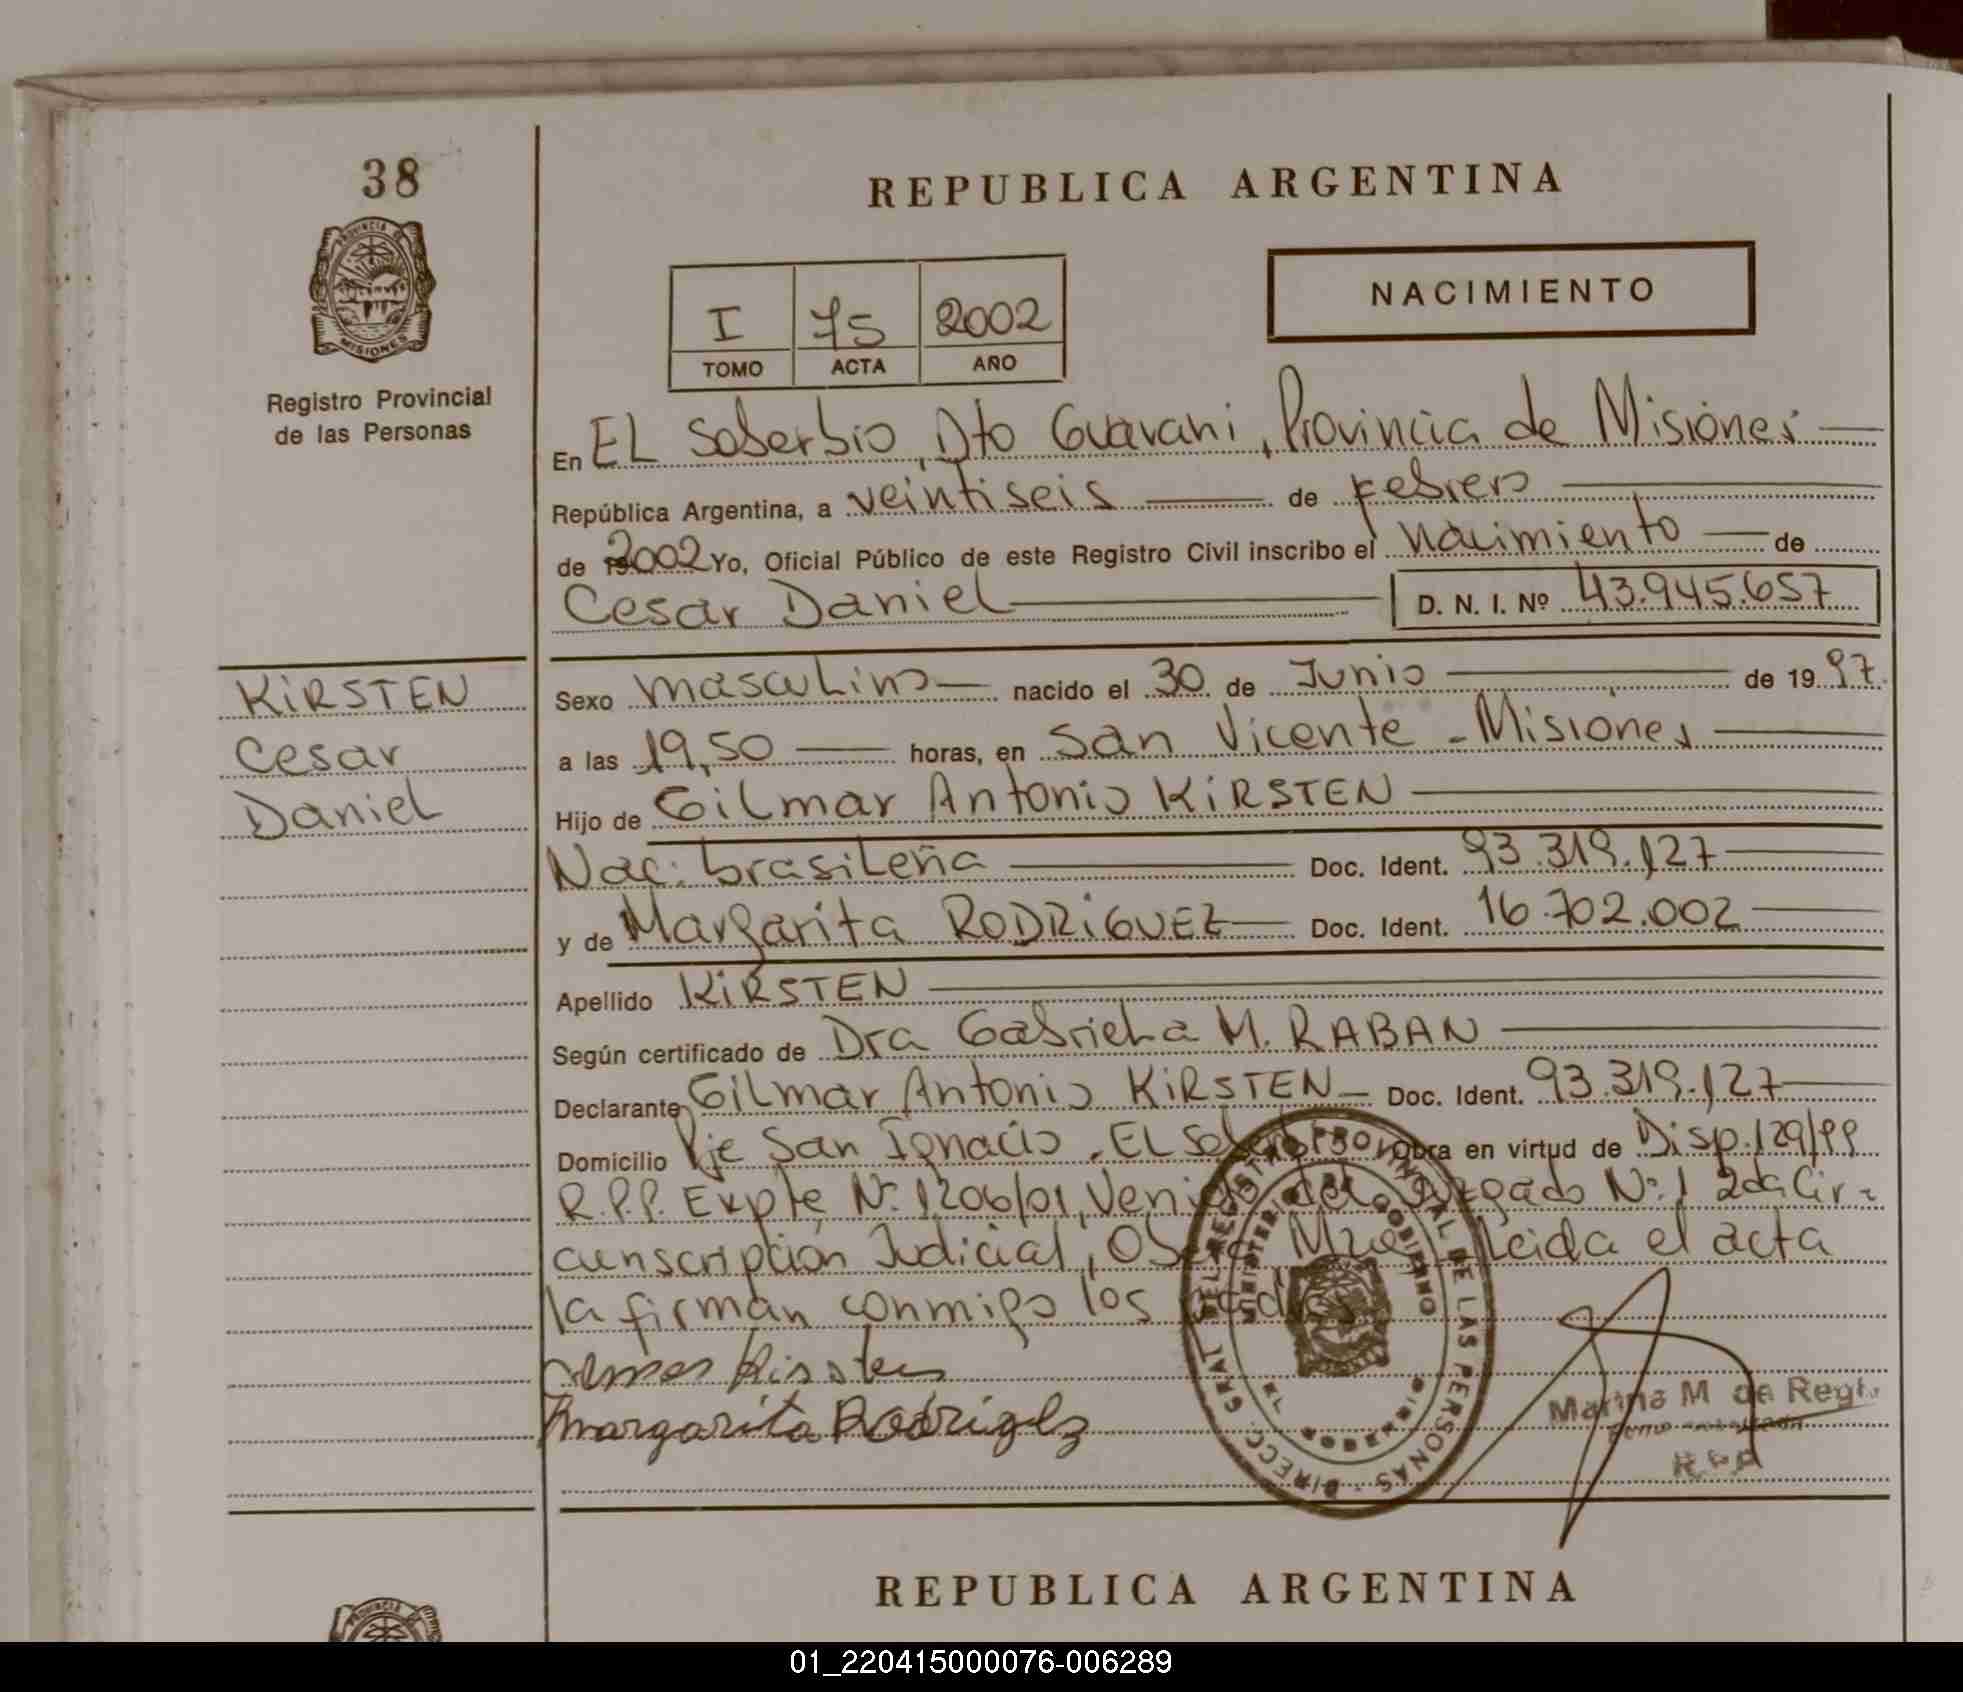 38
REPUBLICA ARGENTINA
PROVINCIA DE
MISIONES
Registro Provincial
de las Personas
I 75 2002
TOMO ACTA AÑO
NACIMIENTO
En EL Soberbio, Dto Guarani, Provincia de Misiones
República Argentina, a veintiseis de Febrero
de 2002 Yo, Oficial Público de este Registro Civil inscribo el Nacimiento de
Cesar Daniel D. N. I. Nº 43.945.657
KiRSTEN
Cesar
Daniel
Sexo masculino nacido el 30 de Junio de 1997
a las 19,50 horas, en San Vicente - Misiones
Hijo de Gilmar Antonio KiRSTEN
Nac: brasileña Doc. Ident. 93.319.127
y de Margarita RODRiGUEZ Doc. Ident. 16.702.002
Apellido KiRSTEN
Según certificado de Dra Gabriela M. RABAN
Declarante Gilmar Antonio KiRSTEN Doc. Ident. 93.319.127
Domicilio Pje San Ignacio, EL Soberbio Obra en virtud de Disp. 129/99
R.P.P. Expte Nº 1206/01, Venido del Juzgado Nº 1 2da Cir-
cunscripción Judicial, Oberá Mnes. Leida el acta
la firman conmigo los padres
Kirsten
Margarita Rodriguez
DIRECC. GRAL DEL REGISTRO PROVINCIAL DE LAS PERSONAS
MINISTERIO DE GOBIERNO
Marina M de Regi
R P P
REPUBLICA ARGENTINA
PROVINCIA DE
01_220415000076-006289